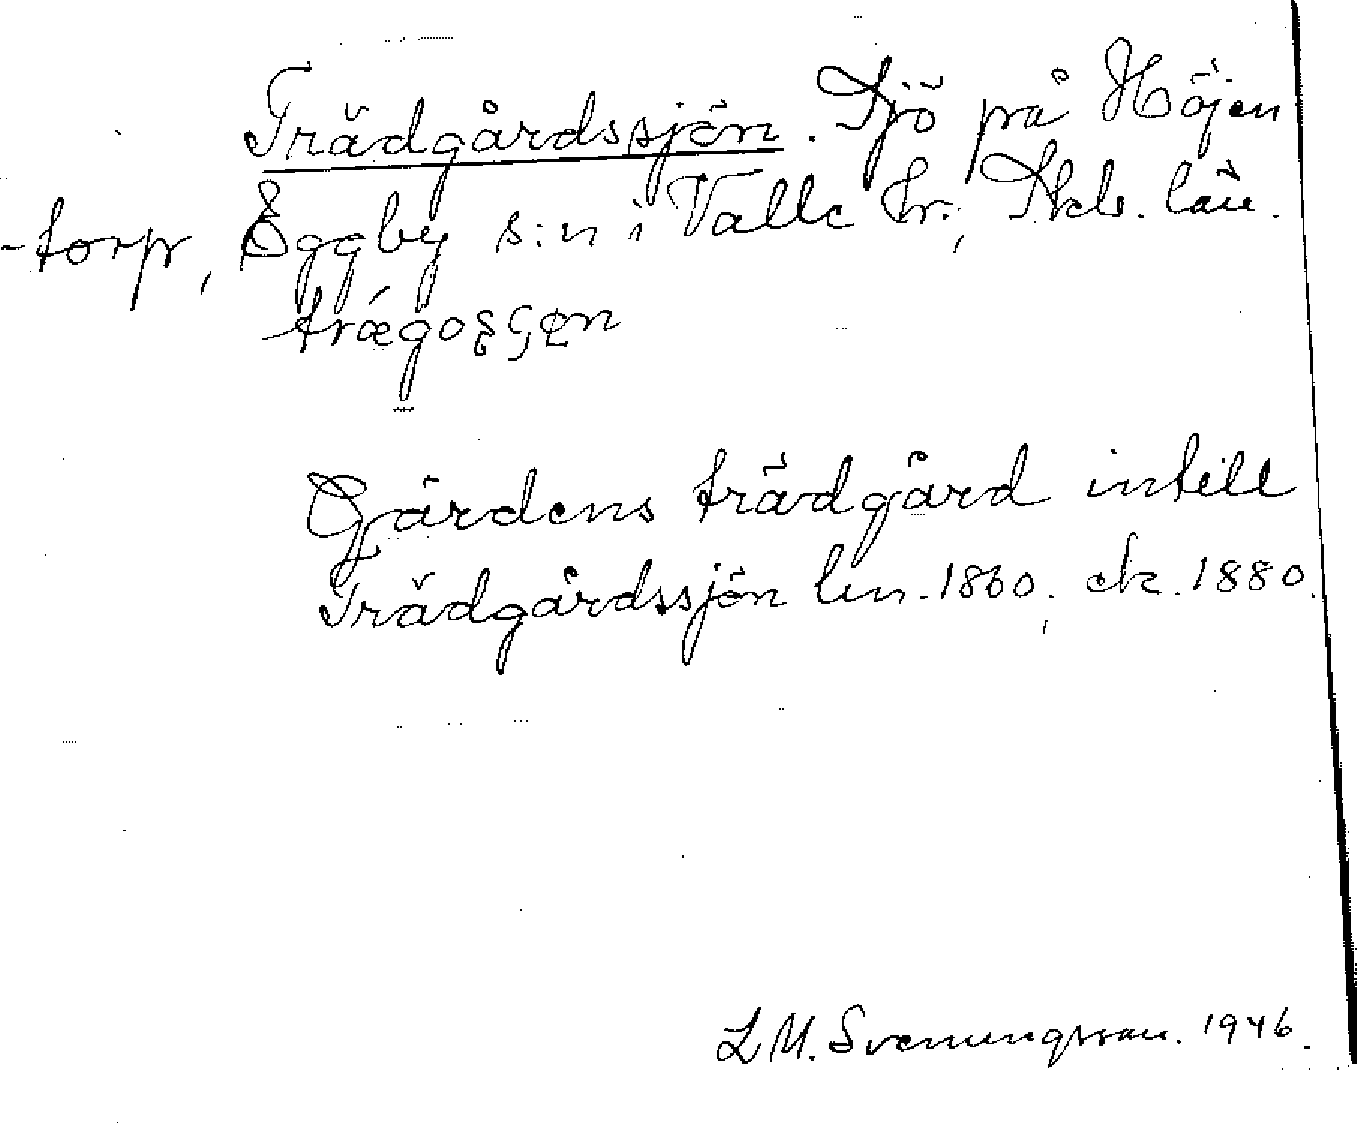 Trädgårdssjön. Sjö på Höjen
-torp, Eggby s:n i Valle hr., Skb. län.
Gårdens trädgård intill
Trädgårdssjön len. 1860, ek. 1880.
L M. Svenungsson. 1946.